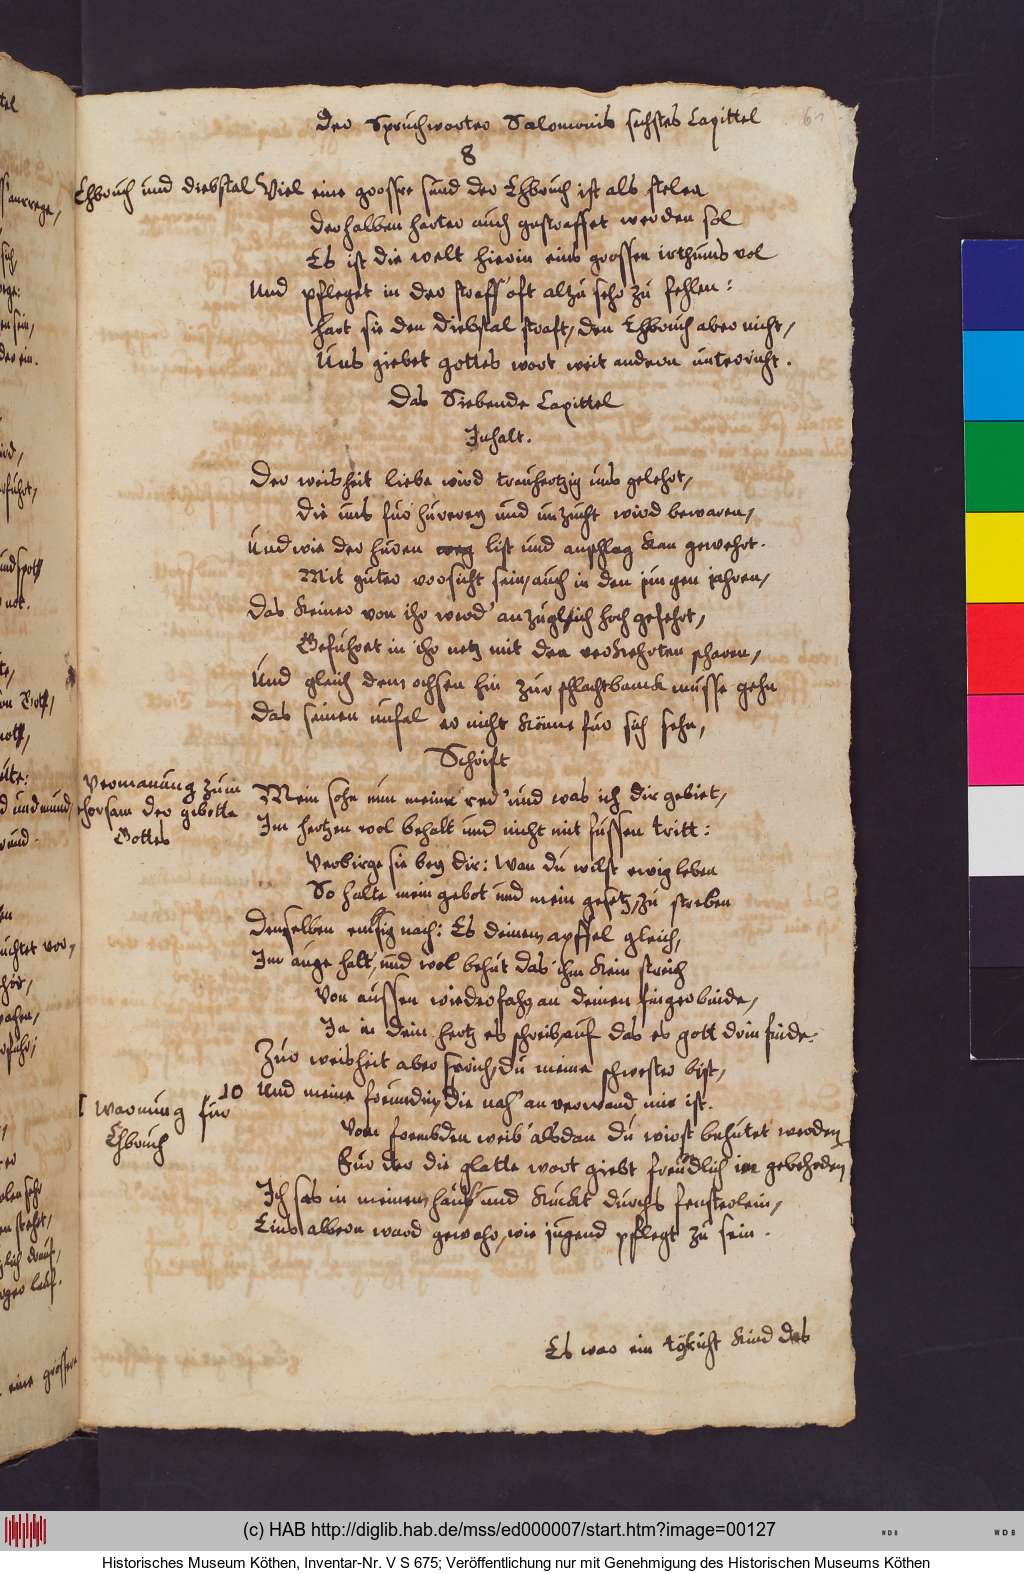 Der Spruchworter Salomonis sechstes Capittel
61
8
Ehbruch und diebstal
Viel eine grossre sund der Ehbruch ist als stelen
derhalben harter auch gestraffet werden sol
Es ist die welt hierin eins grossen irthums vol
Und pfleget in der straff oft alzu sehr zu fehlen:
hart sie den diebstal straft, den Ehbruch aber nicht,
Uns giebet gottes wort weit andern unterricht.
Das Siebende Capittel
Inhalt.
Der weisheit liebe wird treuhertzig uns gelehrt,
die uns für hurerey und unzucht wird bewaren,
Und wie der huren list und anschlag kan gewehrt
Mit guter vorsicht sein, auch in den jungen jahren,
das keiner von ihr werd' anzuglich hoch gesehrt,
Geführet in ihr netz mit den verkehrten scharen,
Und gleich dem ochsen hin zur schlachtbanck müsse gehn
das seinen unfal er nicht könne für sich sehn,
Schrift
Vermanung zum
ehorsam der gebotte
Gottes
Mein sohn nim meine red' und was ich dir gebiet,
Im hertzen wol behalt und nicht mit füssen tritt:
Verbirge sie bey dir: Wan du wilst ewig leben
So halte mein gebot und mein gesetz, zu streben
Denselben emsig nach: Es deinem apffel gleich,
Im auge halt, und wol behüt das ihm kein streich
Von aussen wiederfahr, an deinen finger binde,
Ja in dein hertz es schreib, auf das es gott drin finde.
Zur weisheit aber sprich, du meine schwester bist,
10
Und meine freundin, die nah' anverwand mir ist.
warnung für
Ehbruch
Vom frembden weib alsdan du wirst behütet werden
Für der die glatte wort giebt freundlich in geberden
Ich sas in meinem haus' und kuckt durchs fensterlein,
Eins albern ward gewahr, wie jugend pflegt zu sein.
Es war ein töricht kind das
(c) HAB http://diglib.hab.de/mss/ed000007/start.htm?image=00127
WDB
WDB
Historisches Museum Köthen, Inventar-Nr. V S 675; Veröffentlichung nur mit Genehmigung des Historischen Museums Köthen